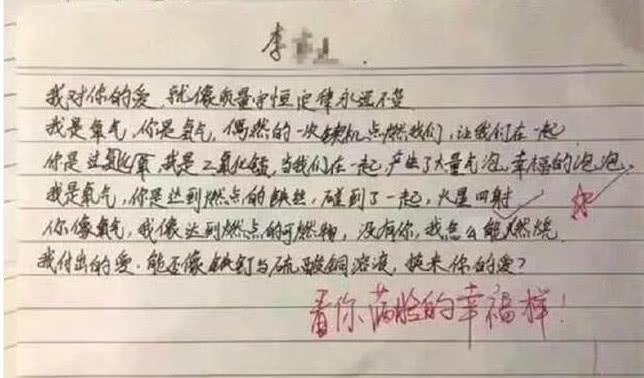 李
我对你的爱,就像质量守恒定律永远不变
我是氧气,你是氢气,偶然的一次契机点燃我们,让我们在一起
你是过氧化氢,我是二氧化锰,当我们在一起,产生了大量气泡,幸福的泡泡
我是氧气,你是达到燃点的铁丝,碰到了一起,火星四射
你像氧气,我像达到燃点的可燃物,没有你,我怎么能燃烧
我付出的爱.能否像铁钉与硫酸铜溶液,换来你的爱?
看你满脸的幸福样!